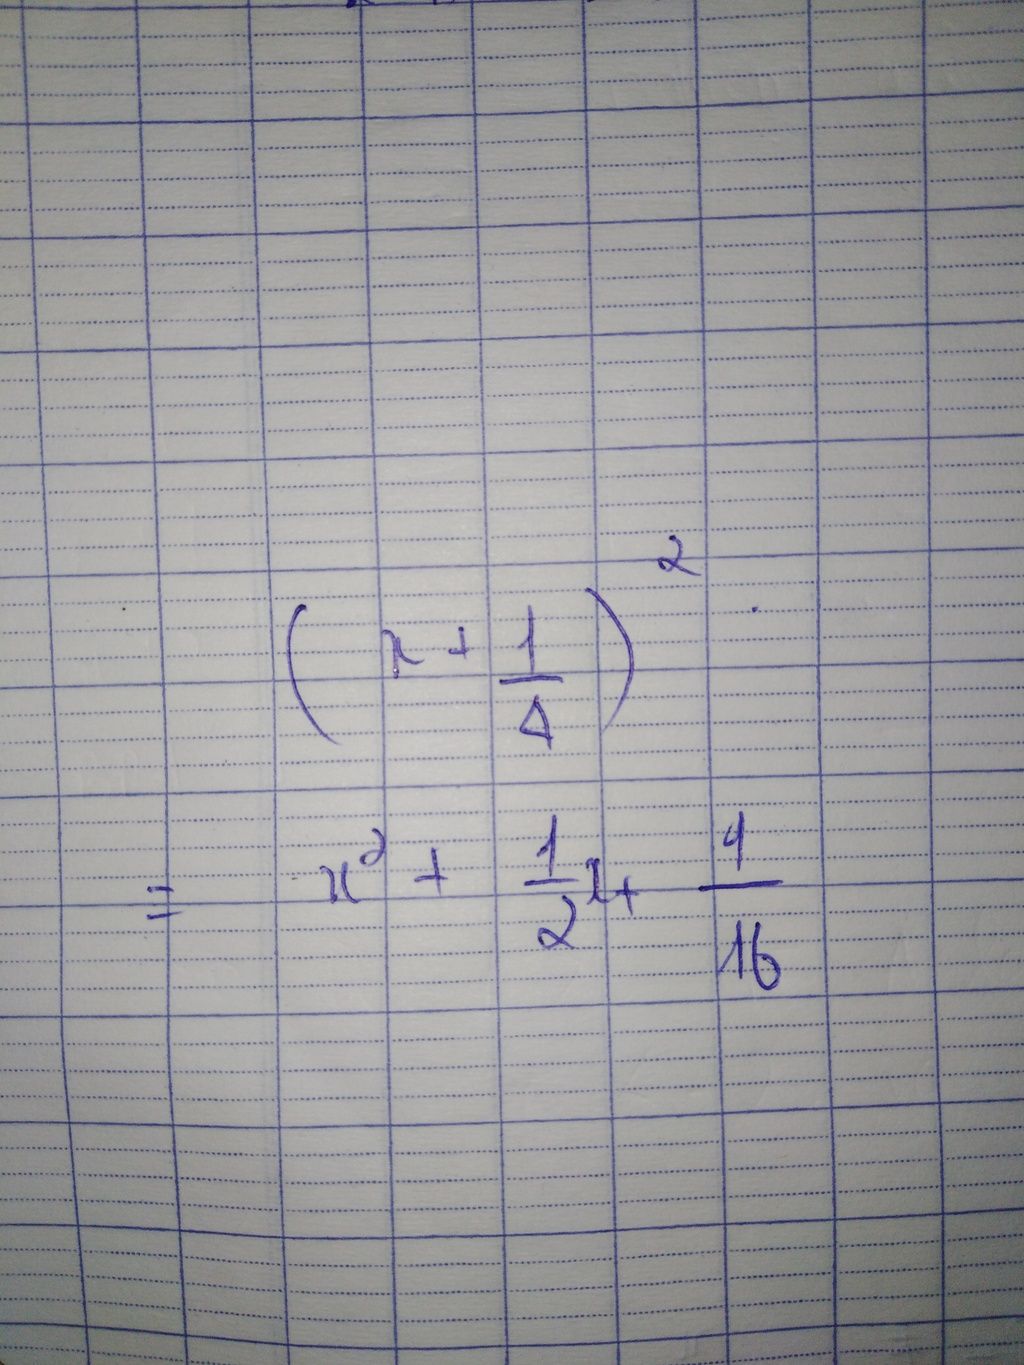 (x + 1/4)²
= x² + 1/2 x + 1/16